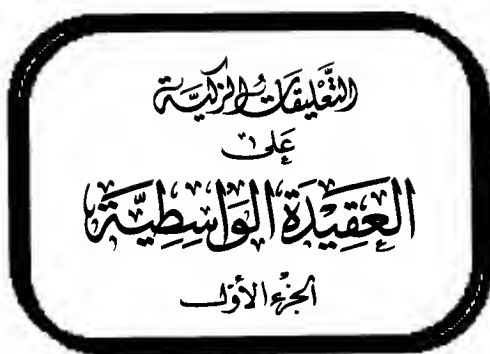 التَّعْلِيقَاتُ الزَّكِيَّة
عَلى
العَقِيْدَة الوَاسِطِيَّة
الجُزْء الأوّل